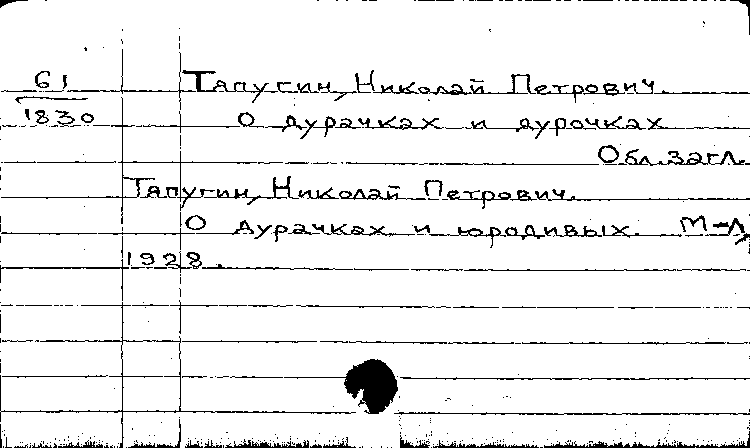 61 Тапугин, Николай Петрович.
1830 О дурачках и дурочках
Обл. загл.
Тапугин, Николай Петрович.
О дурачках и юродивых. М-Л,
1928.